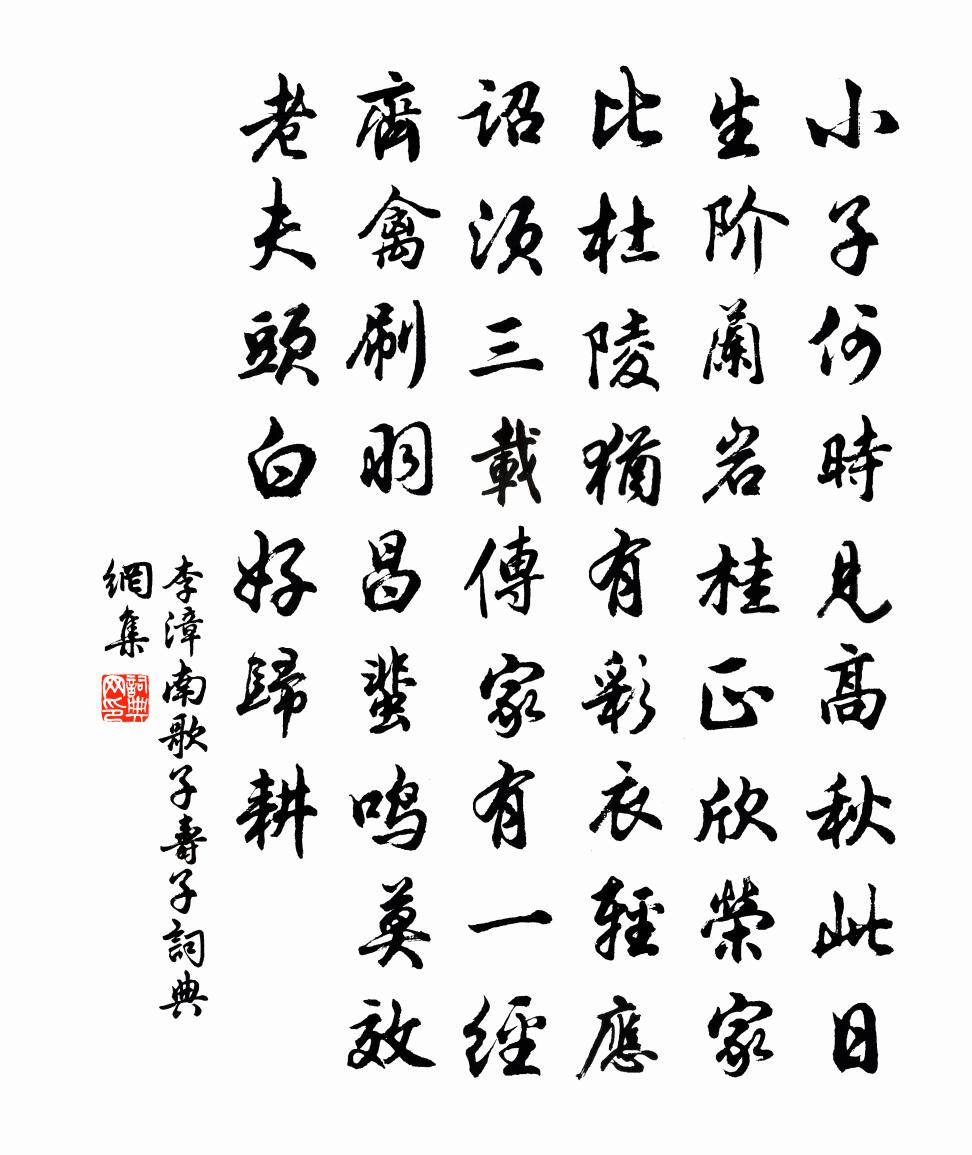 小子何時見高秋此日
生阶蘭岩桂正欣榮家
比杜陵猶有彩衣輕應
詔須三載傳家有一經
齊禽刷羽昌蜚鳴莫效
老夫頭白好歸耕
李漳南歌子壽子詞典
網集
詞典
网印